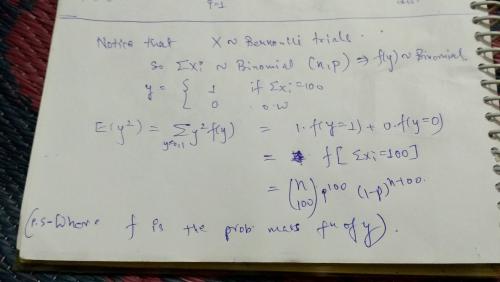 Notice that X ~ Bernoulli trials.
So Σxi ~ Binomial (n,p) ⇒ f(y) ~ Binomial
y = { 1 if Σxi=100
0 o.w
E(y²) = Σ y=0,1 y² f(y) = 1·f(y=1) + 0·f(y=0)
= f[Σxi=100]
= (n 100) p^100 (1-p)^n-100.
(P.S-Where f is the prob. mass fn of y).